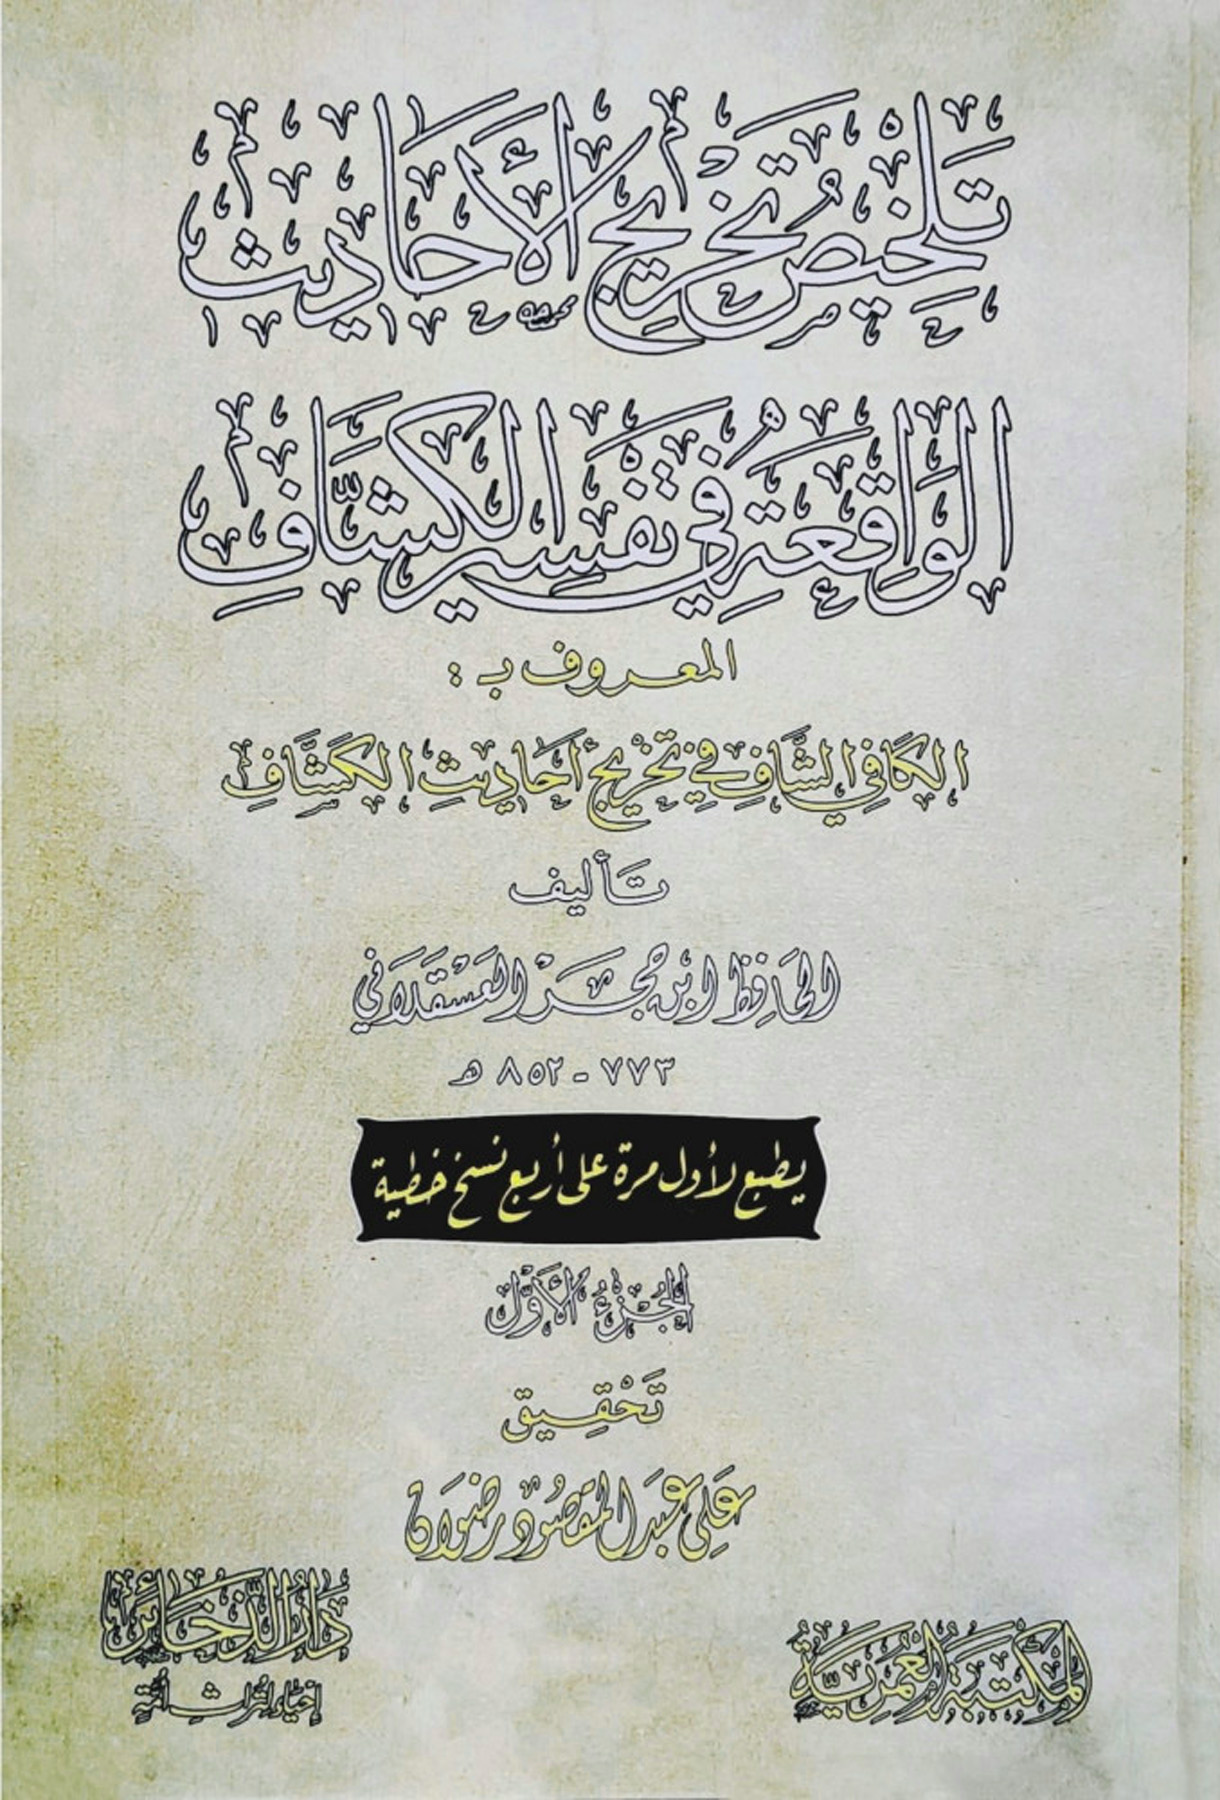 تَلخِيصُ تَخْرِيجِ الأَحَادِيثِ
الوَاقِعَةِ فِي تَفْسِيرِ الكَشَّافِ
المعروف بـ :
الكَافِي الشَّافِ فِي تَخْرِيجِ أَحَادِيثِ الكَشَّافِ
تَأليف
الحَافِظ ابن حجَر العَسْقَلَاني
٧٧٣ - ٨٥٢ هـ
يطبع لأول مرة على أربع نسخ خطية
الجُزْءُ الأَوَّل
تَحْقِيق
عَلِي عَبد المَقصُود رضوَان
دَارُ الذَّخَائِر
إحْيَاءٌ لِتُرَاثِ أُمَّةٍ
المَكْتَبَةُ العُمَرِيَّةُ